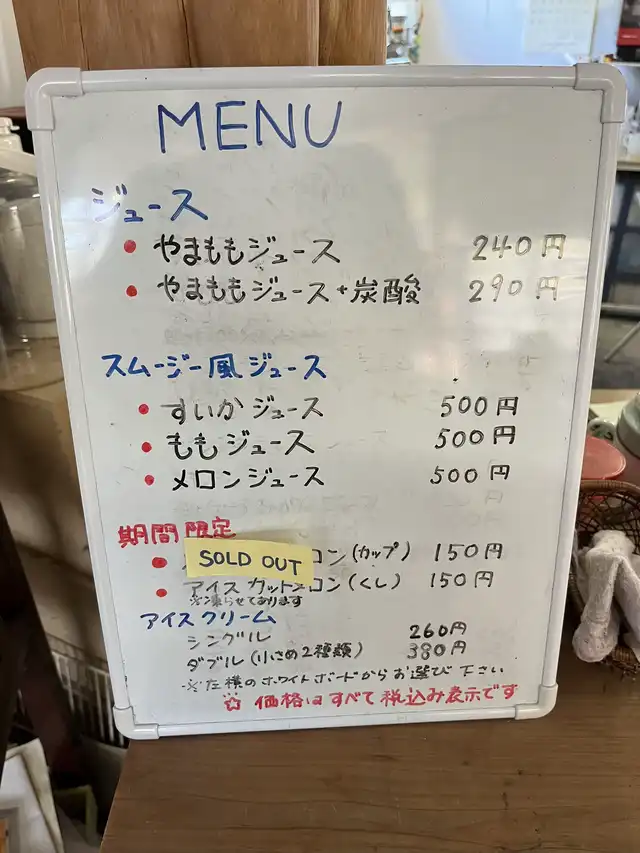 MENU
ジュース
・やまももジュース 240円
・やまももジュース+炭酸 290円
スムージー風ジュース
・すいかジュース 500円
・ももジュース 500円
・メロンジュース 500円
期間限定
SOLD OUT
・ロン(カップ) 150円
・アイスカットメロン(くし) 150円
※凍らせてあります
アイスクリーム
シングル 260円
ダブル(小さめ2種類) 380円
※左横のホワイトボードからお選び下さい
☆価格はすべて税込み表示です